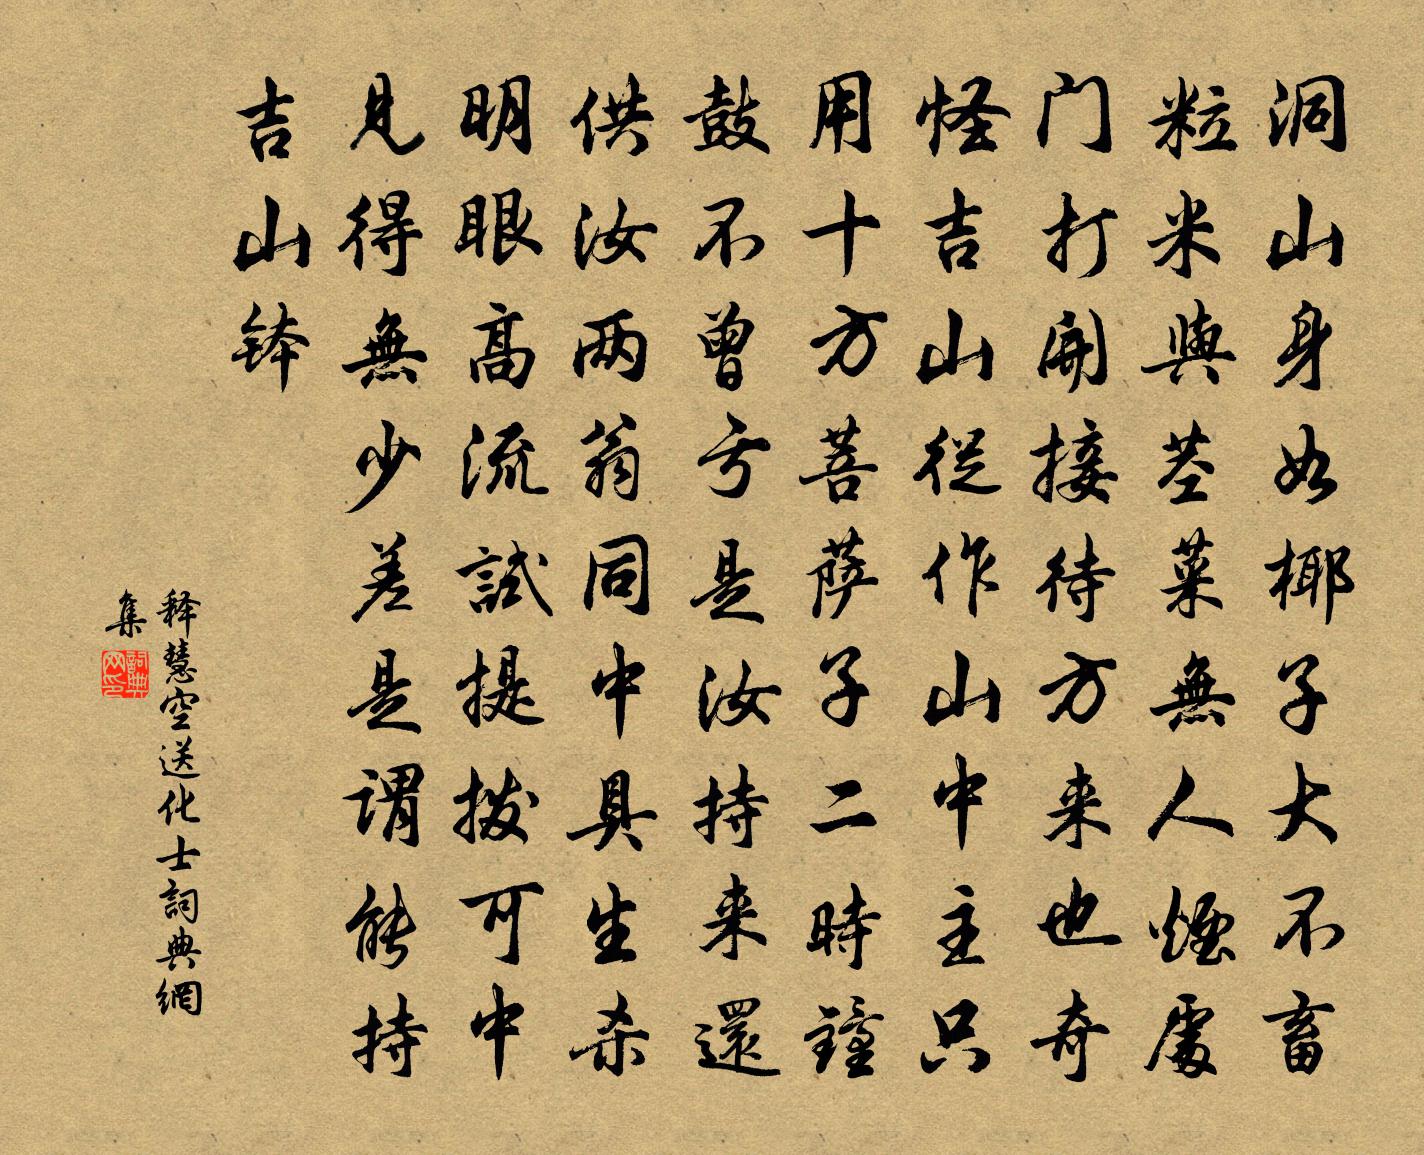 洞山身如椰子大不畜
粒米與茎菜無人煙處
门打開接待方来也奇
怪吉山從作山中主只
用十方菩萨子二時鐘
鼓不曾亏是汝持来還
供汝两翁同中具生杀
明眼高流試提拨可中
見得無少差是谓能持
吉山钵
释慧空送化士詞典網
集
詞典
网印